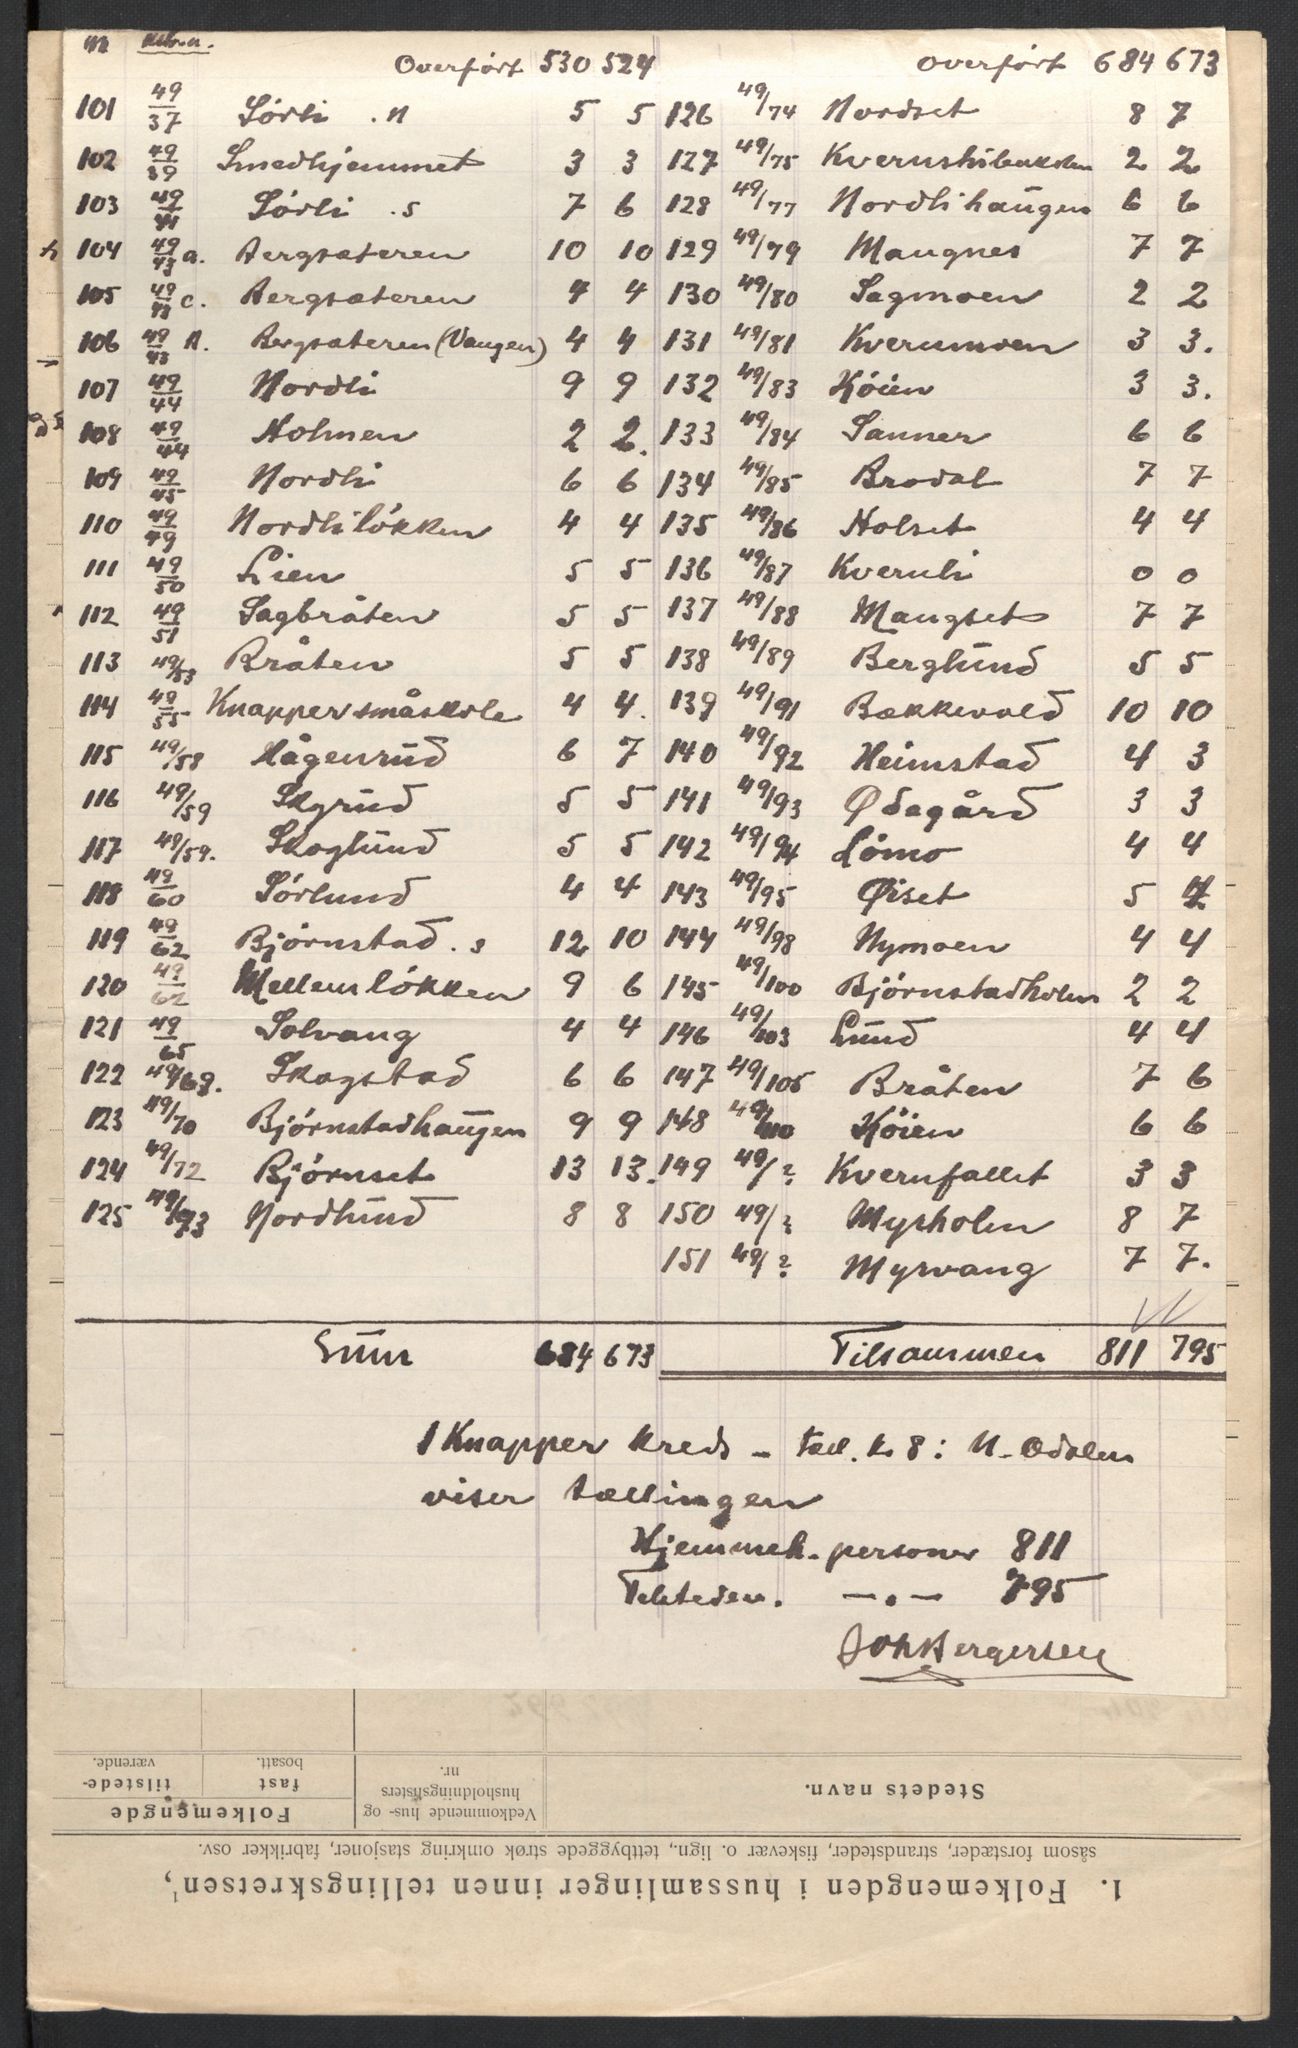 Overført 530 524
101 49/37 Sørli . N 5 5
102 49/39 Smedhjemmet 3 3
103 49/41 Sørli . S 7 6
104 49/43 a. Bergsæteren 10 10
105 49/43 c. Bergsæteren 4 4
106 49/43 Bergsæteren (Vangen) 4 4
107 49/44 Nordli 9 9
108 49/44 Holmen 2 2.
109 49/45 Nordli 6 6
110 49/49 Nordliløkken 4 4
111 49/50 Lien 5 5
112 49/51 Sagbråten 5 5
113 49/53 Bråten 5 5
114 49/55 Knapper småskole 4 4.
115 49/58 Hågenrud 6 7
116 49/59 Skgrud 5 5
117 49/59. Skoglund 5 5
118 49/60 Sørlund 4 4
119 49/62 Bjørnstad . s 12 10
120 49/62 Mellemløkken 9 6
121 49/65 Solvang 4 4
122 49/68. Skogstad 6 6
123 49/70 Bjørnstadhaugen 9 9
124 49/72 Bjørnset 13 13.
125 49/73 Nordlund 8 8
Sum 684 673
Overført 684 673
126 49/74 Nordset 8 7
127 49/75 2 2
128 49/77 Nordlihaugen 6 6
129 49/79 Maugnes 7 7
130 49/80 Sagmoen 2 2
131 49/81 Kvernmoen 3 3.
132 49/83 Køien 3 3.
133 49/84 Sanner 6 6
134 49/85 Brodal 7 7
135 49/86 Holset 4 4
136 49/87 Kvernli 0 0
137 49/88 Maugset 7 7
138 49/89 Berglund 5 5
139 49/91 Bækkevold 10 10
140 49/92 Heimstad 4 3
141 49/93 Ødegård 3 3
142 49/94 Lømo 4 4
143 49/95 Øiset 5 4
144 49/98 Nymoen 4 4
145 49/100 Bjørnstadholm 2 2
146 49/103 Lund 4 4
147 49/105 Bråten 7 6
148 49/110 Køien 6 6
149 49/? Kvernfallet 3 3
150 49/? Myrholm 8 7
151 49/? Myrvang 7 7.
Tilsammen 811 795
I Knapper Kreds - tæl. k 8 : N. Odalen
viser tællingen
Hjemmeh. personer 811
Tilsteden. -"- 795
Joh Bergersen
1. Folkemengden i hussamlinger innen tellingskretsen,
såsom forstæder, strandsteder, fiskevær o. lign., tettbyggede strøk omkring stasjoner, fabrikker osv.
Stedets navn.
Vedkommende hus- og husholdningslisters nr.
Folkemengde
fast bosatt.
tilstede-værende.